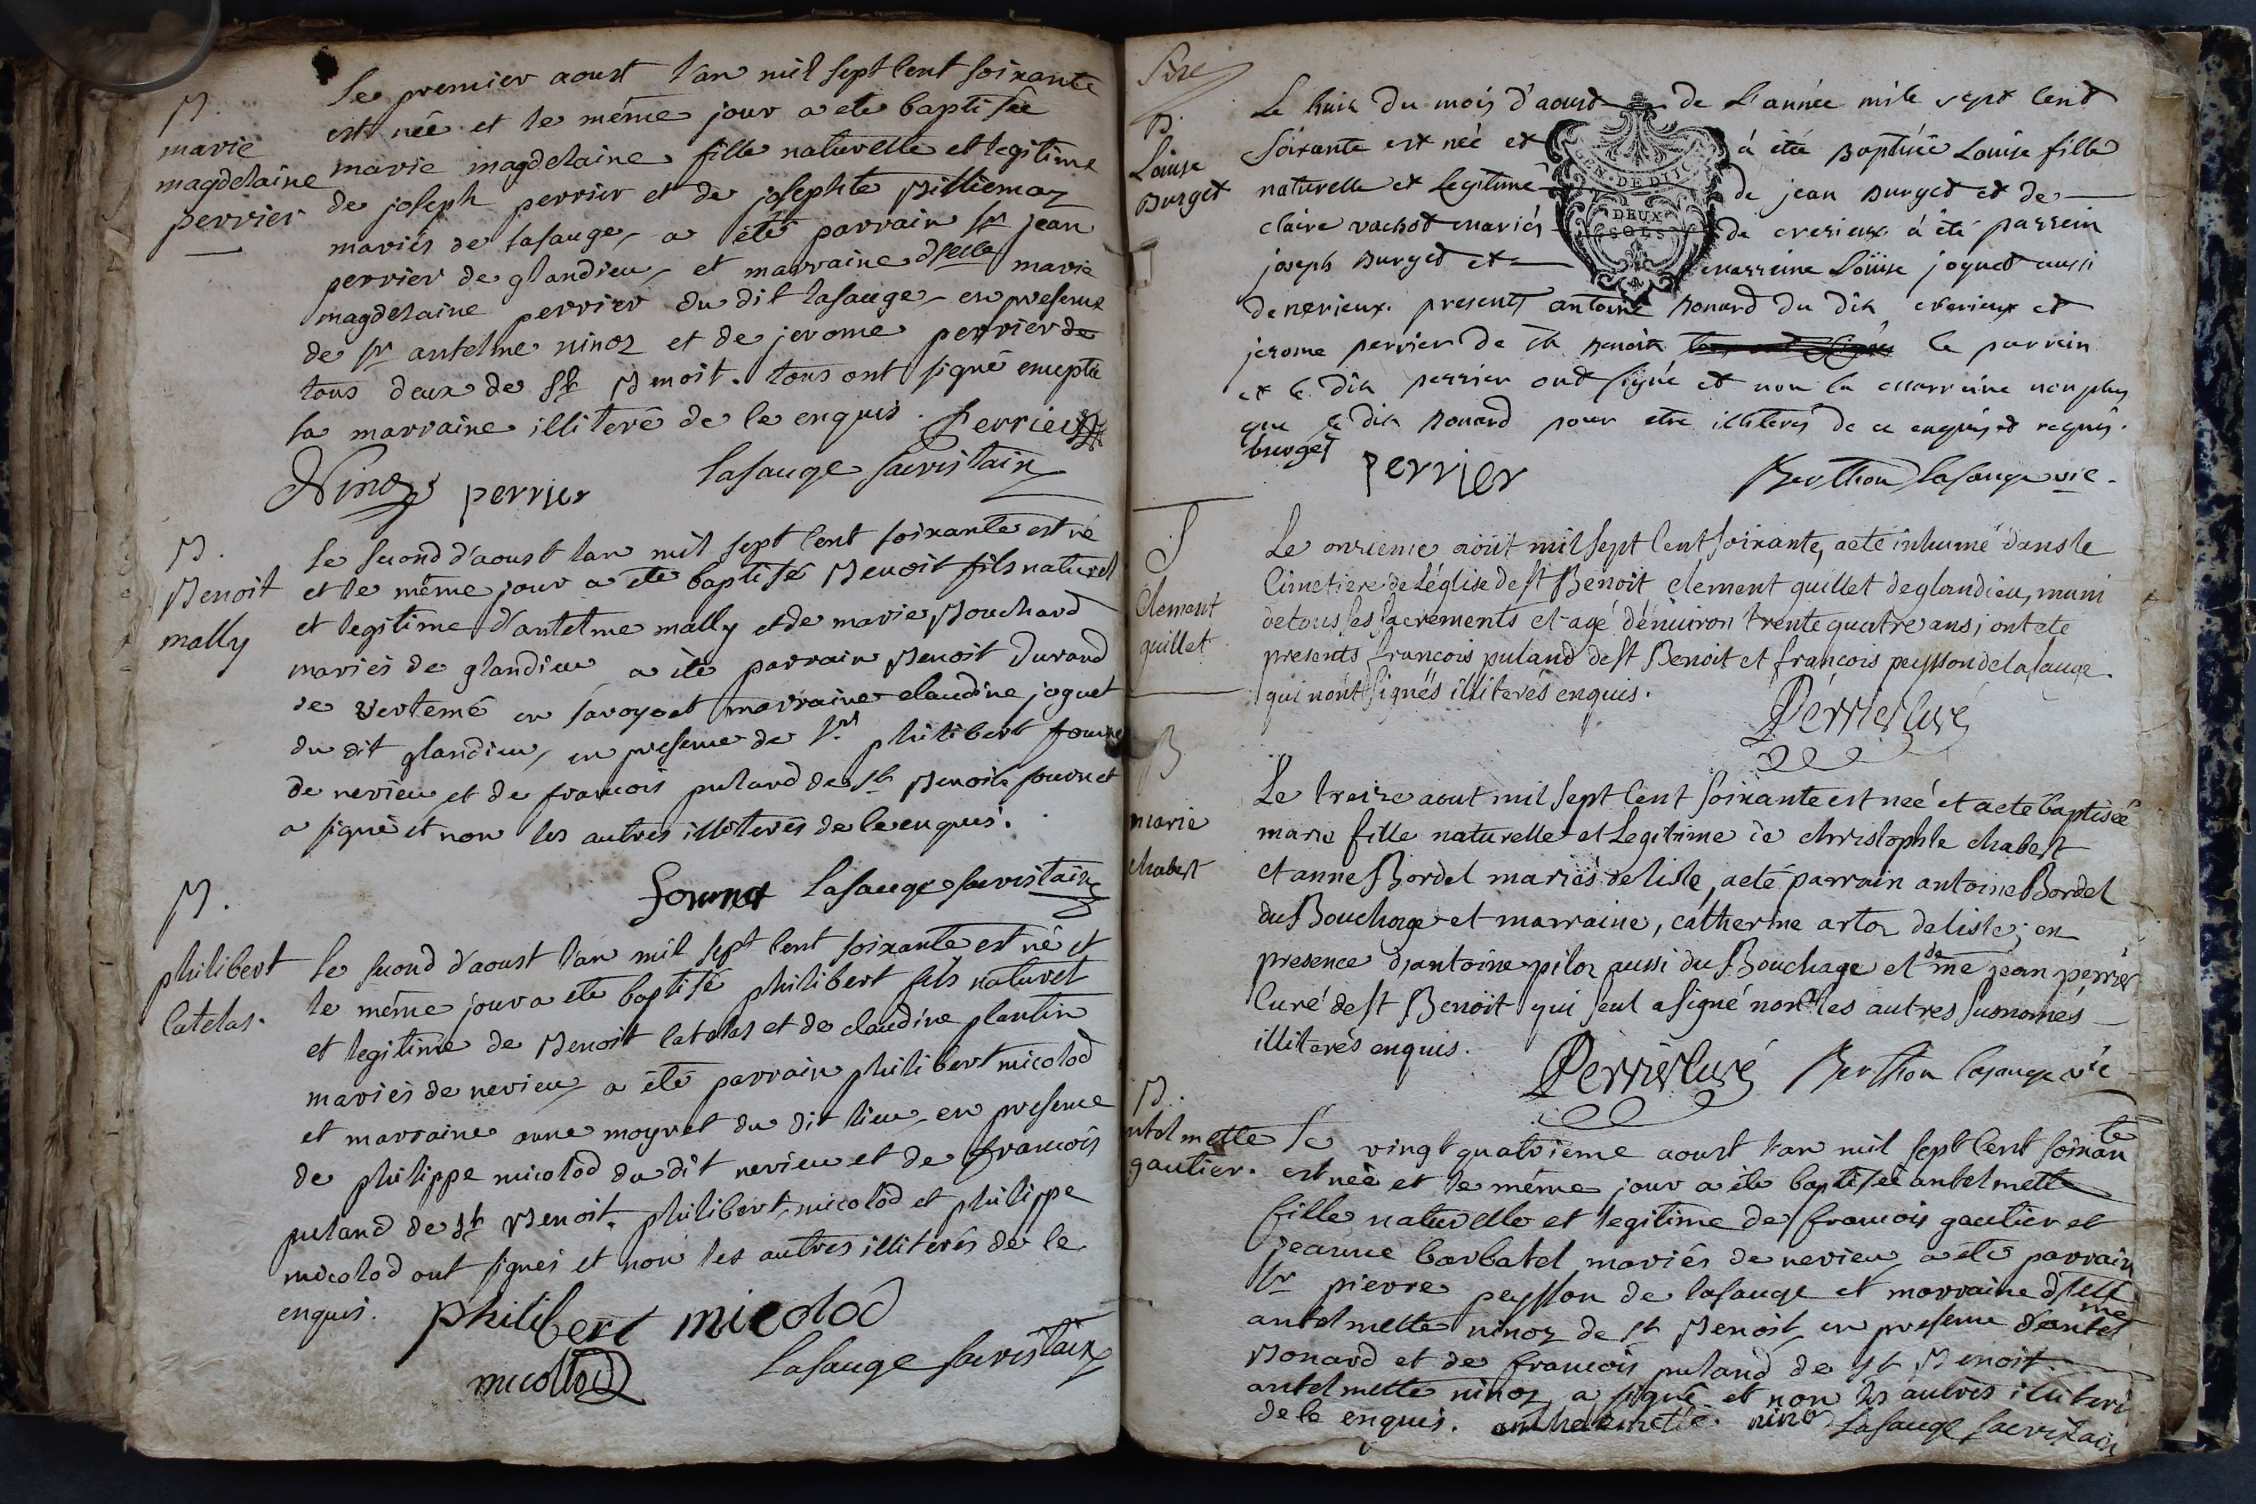 B.
marie
magdelaine
perrier
Le premier aoust l'an mil sept cent soixante
est née et le même jour a ete baptisée
marie magdelaine fille naturelle et legitime
de joseph perrier et de josephte Billiemaz
mariés de lasauge, a été parrain sr jean
perrier de glandieu, et marraine dselle marie
magdelaine perrier du dit lasauge, en presence
de sr antelme ninoz et de jerome perrier de
tous deux de St Benoit. tous ont signé excepté
la marraine illiterée de ce enquis. Perrier
Ninoz perrier lasauge sacristain
B.
Benoit
mally
Le second d'aoust l'an mil sept cent soixante est né
et le même jour a ete baptisé Benoit fils naturel
et legitime d'antelme mally et de marie Bouchard
mariés de glandieu a ète parrain Benoit Durand
de vertemé en savoye et marraine claudine joguet
du dit glandieu, en presence de Sr philibert
de nerieu et de francois puland de St Benoit fournet
a signé et non les autres illiterés de ce enquis.
fournet lasauge sacristain
B.
philibert
catelas.
le second d'aoust l'an mil sept cent soixante est né et
le même jour a ete baptisé philibert fils naturel
et legitime de Benoit catelas et de claudine plantin
mariés de nerieu, a été parrain philibert micolod
et marraine anne moyret du dit lieu, en presence
de philippe micolod du dit nerieu et de francois
puland de St Benoit, philibert micolod et philippe
micolod ont signés et non les autres illiterés de ce
enquis. philibert micolod
micollod lasauge sacristain
B.
Louise
Burget
Le huit du mois d'aoust de l'année mile sept cent
soixante est née et à été Baptisée Louise fille
naturelle et legitime de jean Burget et de
claire vachot mariés de crerieux à été parrein
joseph Burget et marreine Loüise joguet aussi
de nerieux. presents antoine Bonard du dit crerieux et
jerome perrier de st Benoit le parrein
et le dit perrier ont signé et non la marreine non plus
que le dit Bonard pour etre illiterés de ce enquis et requis.
burget perrier Berthon lasauge vic.
GEN. DE DIJON
DEUX
SOLS
S
Clement
quillet
Le onzieme août mil sept cent soixante, a eté inhumé dans le
Cimetiere de l'église de st Benoit clement quillet de glandieu, muni
de tous les sacrements et agé d'environ trente quatre ans, ont eté
presents francois puland de st Benoit et françois peysson de la sauge
qui n'ont signés illiterés enquis.
Perrier curé
B
marie
chabert
Le treize aout mil sept cent soixante est neé et a eté baptisée
marie fille naturelle et Legitime de christophle chabert
et anne Bordel mariés de liste, a eté parrain antoine Bordel
du Bouchage et marraine, catherine artoz de liste; en
presence d'antoine piloz aussi du Bouchage et de me jean perrier
Curé de st Benoit qui seul a signé non les autres susnomés
illiterés enquis.
Perrier curé Berthon lasauge vic
B.
antelmette
gautier.
Le vingt quatrieme aoust l'an mil sept cent soixante
est née et le même jour a éte baptisée antelmette
fille naturelle et legitime de francois gautier et
jeanne barbatel mariés de nerieu, a ete parrain
Sr pierre peysson de lasauge et marraine dselle
antelmette ninoz de St Benoit, en presence d'antelme
Bonard et de francois puland de St Benoit.
antelmette ninoz a signé et non les autres illiterés
de ce enquis. anthelmette ninoz lasauge sacristain